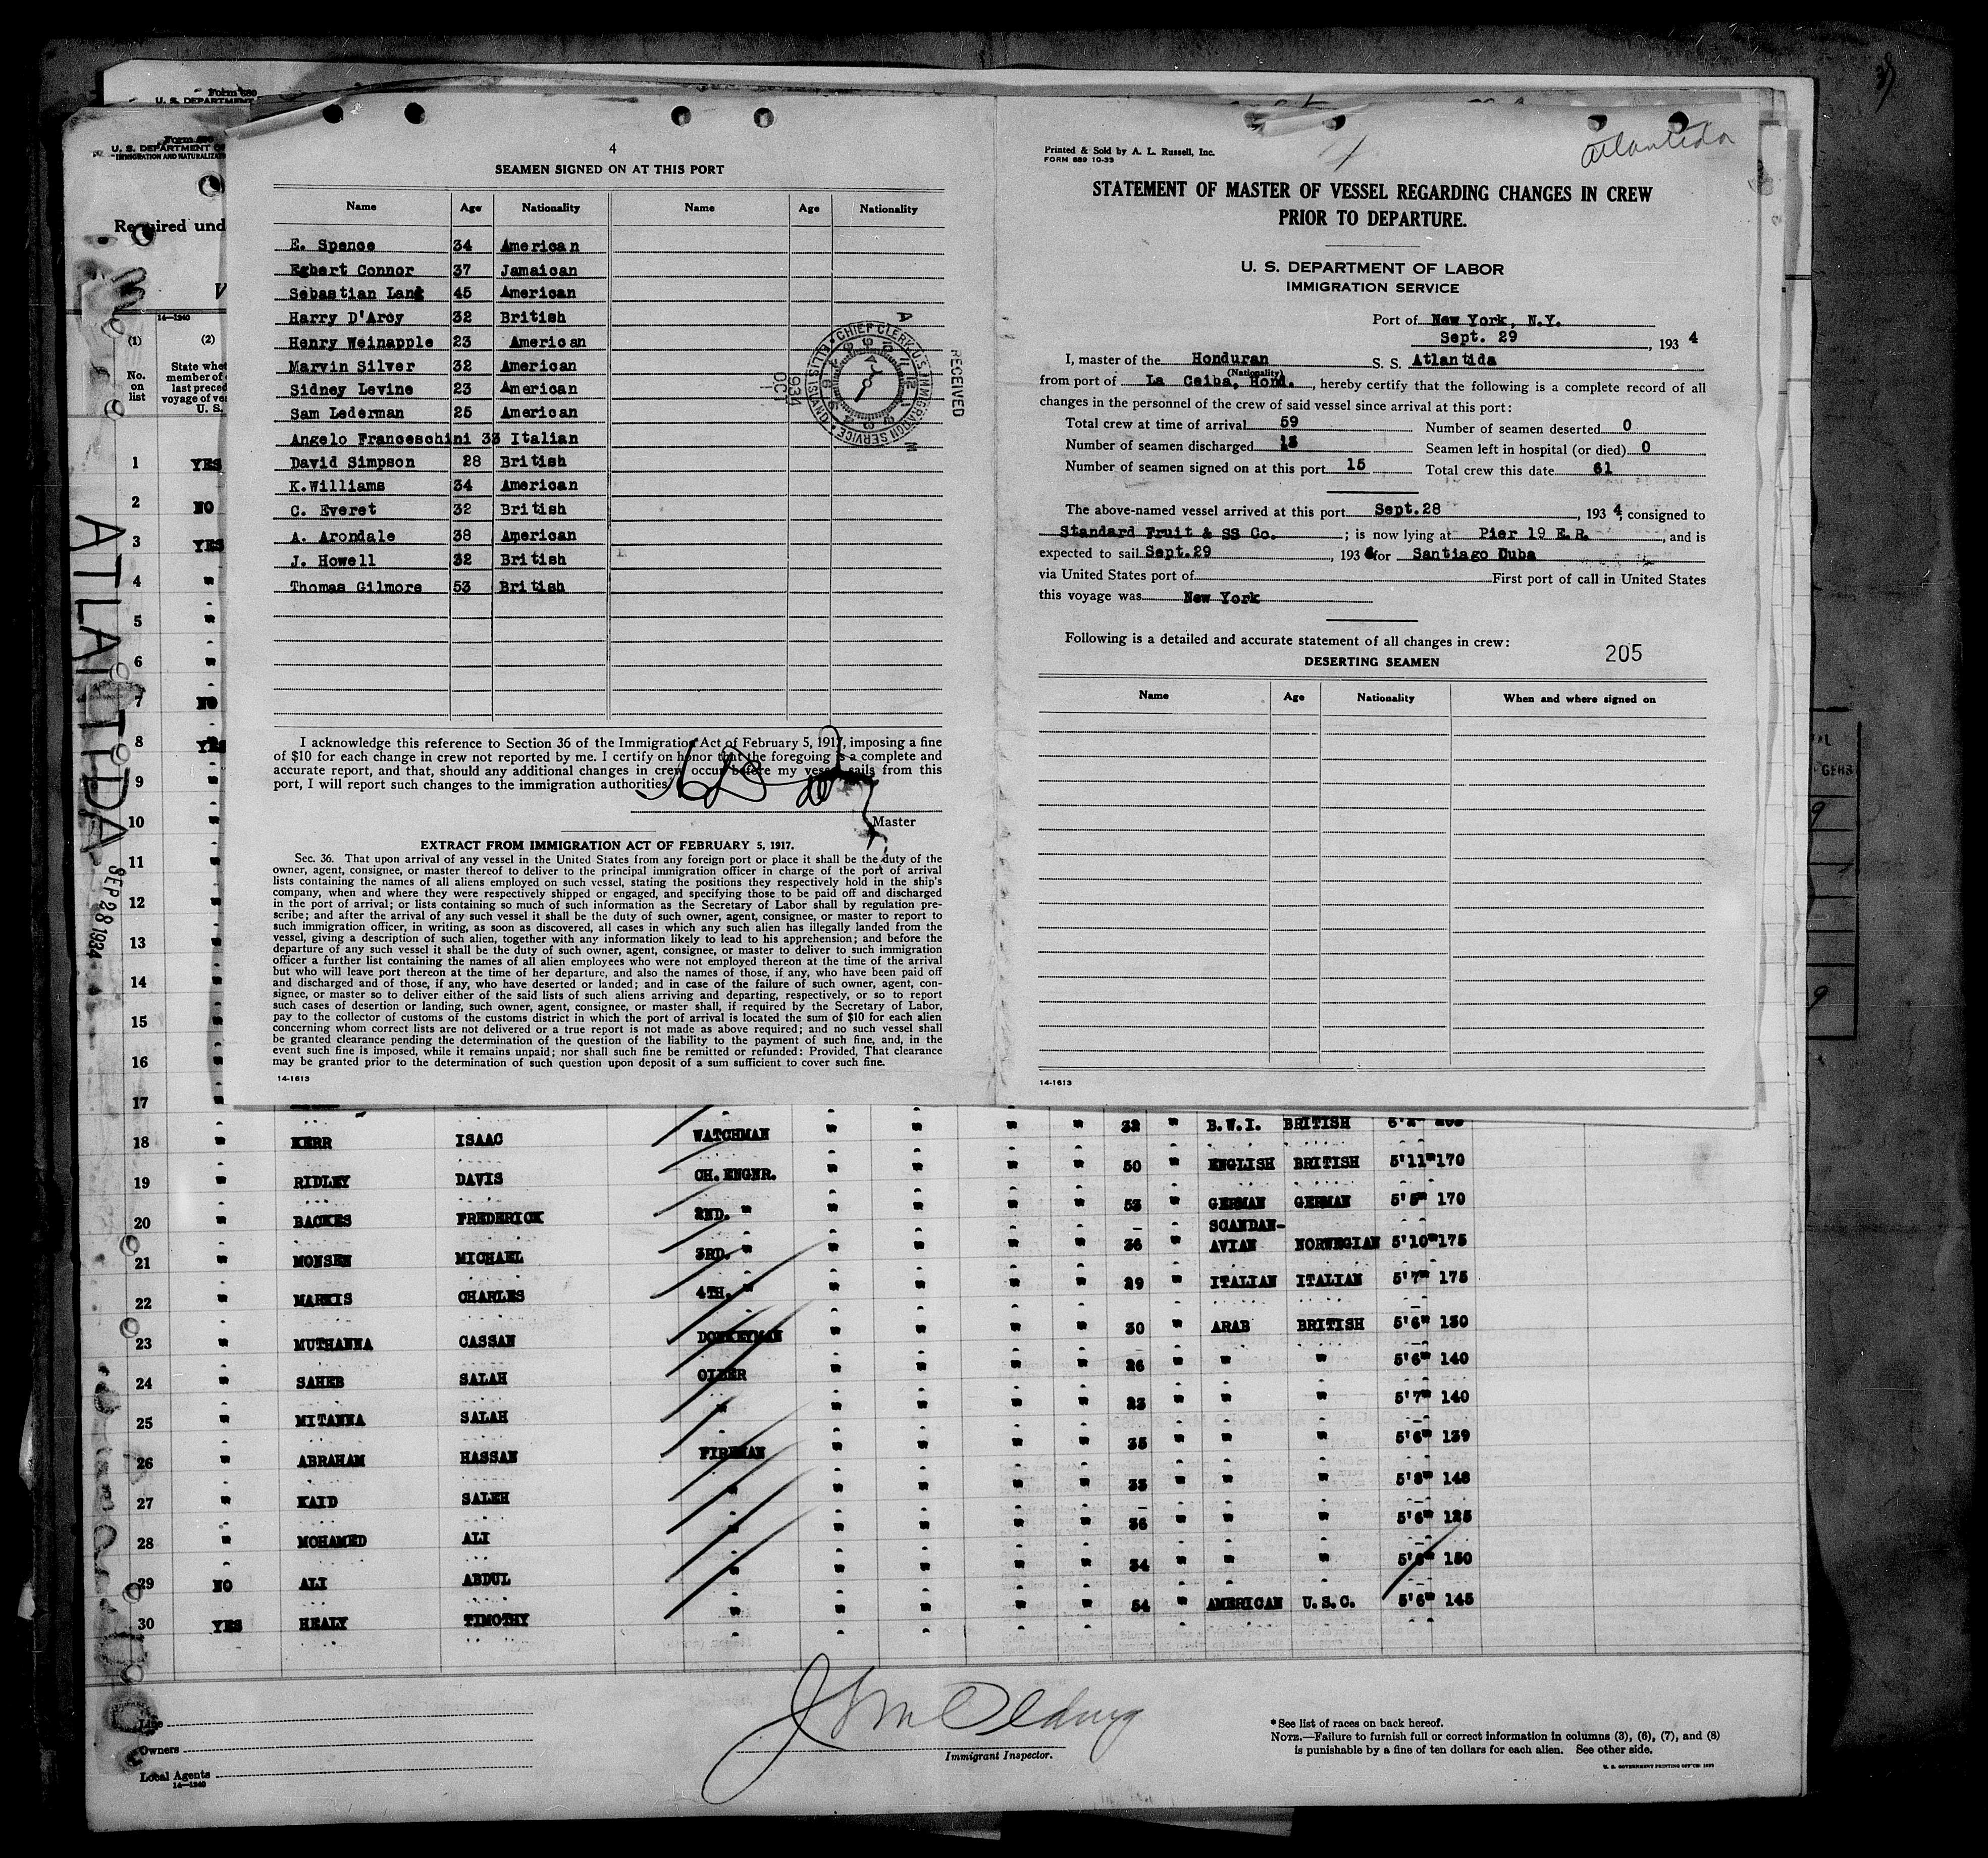 Form 680
U. S. DEPARTMENT
Form 680
U. S. DEPARTMENT OF
IMMIGRATION AND NATURALIZAT
Required und
14—1240
(1) (2)
No. on list
State whe
member of
last preced
voyage of ve
U. S.
ATLANTIDA
SEP 28 1934
4
SEAMEN SIGNED ON AT THIS PORT
Name Age Nationality Name Age Nationality
E. Spence 34 American
Egbert Connor 37 Jamaican
Sebastian Lang 45 American
Harry D'Arcy 32 British
Henry Weinapple 23 American
Marvin Silver 32 American
Sidney Levine 23 American
Sam Lederman 25 American
Angelo Franceschini 33 Italian
David Simpson 28 British
K.Williams 34 American
C. Everet 32 British
A. Arondale 38 American
J. Howell 32 British
Thomas Gilmore 53 British
RECEIVED
CHIEF CLERK U.S. IMMIGRATION SERVICE • ELLIS ISLAND
1934 OCT 1
A M
I acknowledge this reference to Section 36 of the Immigration Act of February 5, 1917, imposing a fine
of $10 for each change in crew not reported by me. I certify on honor that the foregoing is a complete and
accurate report, and that, should any additional changes in crew occur before my vessel sails from this
port, I will report such changes to the immigration authorities.
Master
EXTRACT FROM IMMIGRATION ACT OF FEBRUARY 5, 1917.
Sec. 36. That upon arrival of any vessel in the United States from any foreign port or place it shall be the duty of the
owner, agent, consignee, or master thereof to deliver to the principal immigration officer in charge of the port of arrival
lists containing the names of all aliens employed on such vessel, stating the positions they respectively hold in the ship's
company, when and where they were respectively shipped or engaged, and specifying those to be paid off and discharged
in the port of arrival; or lists containing so much of such information as the Secretary of Labor shall by regulation pre-
scribe; and after the arrival of any such vessel it shall be the duty of such owner, agent, consignee, or master to report to
such immigration officer, in writing, as soon as discovered, all cases in which any such alien has illegally landed from the
vessel, giving a description of such alien, together with any information likely to lead to his apprehension; and before the
departure of any such vessel it shall be the duty of such owner, agent, consignee, or master to deliver to such immigration
officer a further list containing the names of all alien employees who were not employed thereon at the time of the arrival
but who will leave port thereon at the time of her departure, and also the names of those, if any, who have been paid off
and discharged and of those, if any, who have deserted or landed; and in case of the failure of such owner, agent, con-
signee, or master so to deliver either of the said lists of such aliens arriving and departing, respectively, or so to report
such cases of desertion or landing, such owner, agent, consignee, or master shall, if required by the Secretary of Labor,
pay to the collector of customs of the customs district in which the port of arrival is located the sum of $10 for each alien
concerning whom correct lists are not delivered or a true report is not made as above required; and no such vessel shall
be granted clearance pending the determination of the question of the liability to the payment of such fine, and, in the
event such fine is imposed, while it remains unpaid; nor shall such fine be remitted or refunded: Provided, That clearance
may be granted prior to the determination of such question upon deposit of a sum sufficient to cover such fine.
14-1613
Atlantida
Printed & Sold by A. L. Russell, Inc.
FORM 689 10-33
STATEMENT OF MASTER OF VESSEL REGARDING CHANGES IN CREW
PRIOR TO DEPARTURE.
U. S. DEPARTMENT OF LABOR
IMMIGRATION SERVICE
Port of New York, N.Y.
Sept. 29, 1934
I, master of the Honduran S. S. Atlantida
(Nationality)
from port of La Ceiba, Hond., hereby certify that the following is a complete record of all
changes in the personnel of the crew of said vessel since arrival at this port:
Total crew at time of arrival 59 Number of seamen deserted 0
Number of seamen discharged 13 Seamen left in hospital (or died) 0
Number of seamen signed on at this port 15 Total crew this date 61
The above-named vessel arrived at this port Sept.28, 1934, consigned to
Standard Fruit & SS Co.; is now lying at Pier 19 E.R., and is
expected to sail Sept.29, 1934 for Santiago Cuba
via United States port of First port of call in United States
this voyage was New York
Following is a detailed and accurate statement of all changes in crew:
205
DESERTING SEAMEN
Name Age Nationality When and where signed on
14-1613
1 YES
2 NO
3 YES
4 "
5 "
6 "
7 NO
8 YES
9 "
10 "
11 "
12 "
13 "
14 "
15 "
16 "
17 "
18 " KERR ISAAC WATCHMAN " " " " 32 " B.W.I. BRITISH 6'2"
19 " RIDLEY DAVIS CH. ENGNR. " " " " 50 " ENGLISH BRITISH 5'11" 170
20 " BACKES FREDERICK 2ND. " " " " " 53 " GERMAN GERMAN 5'5" 170
21 " MONSEN MICHAEL 3RD. " " " " " 36 " SCANDAN-AVIAN NORWEGIAN 5'10" 175
22 " MARKIS CHARLES 4TH. " " " " " 29 " ITALIAN ITALIAN 5'7" 175
23 " MUTHANNA CASSAN DONKEYMAN " " " " 30 " ARAB BRITISH 5'6" 130
24 " SAHEB SALAH OILER " " " " 26 " " " 5'6" 140
25 " MITANNA SALAH " " " " " 23 " " " 5'7" 140
26 " ABRAHAM HASSAN FIREMAN " " " " 35 " " " 5'6" 139
27 " KAID SALEH " " " " " 33 " " " 5'8" 148
28 " MOHAMED ALI " " " " " 36 " " " 5'6" 125
29 NO ALI ABDUL " " " " " 34 " " " 5'6" 150
30 YES HEALY TIMOTHY " " " " " 54 " AMERICAN U.S.C. 5'6" 145
Line
Owners
Local Agents
14—1240
Immigrant Inspector.
*See list of races on back hereof.
NOTE.—Failure to furnish full or correct information in columns (3), (6), (7), and (8)
is punishable by a fine of ten dollars for each alien. See other side.
U. S. GOVERNMENT PRINTING OFFICE: